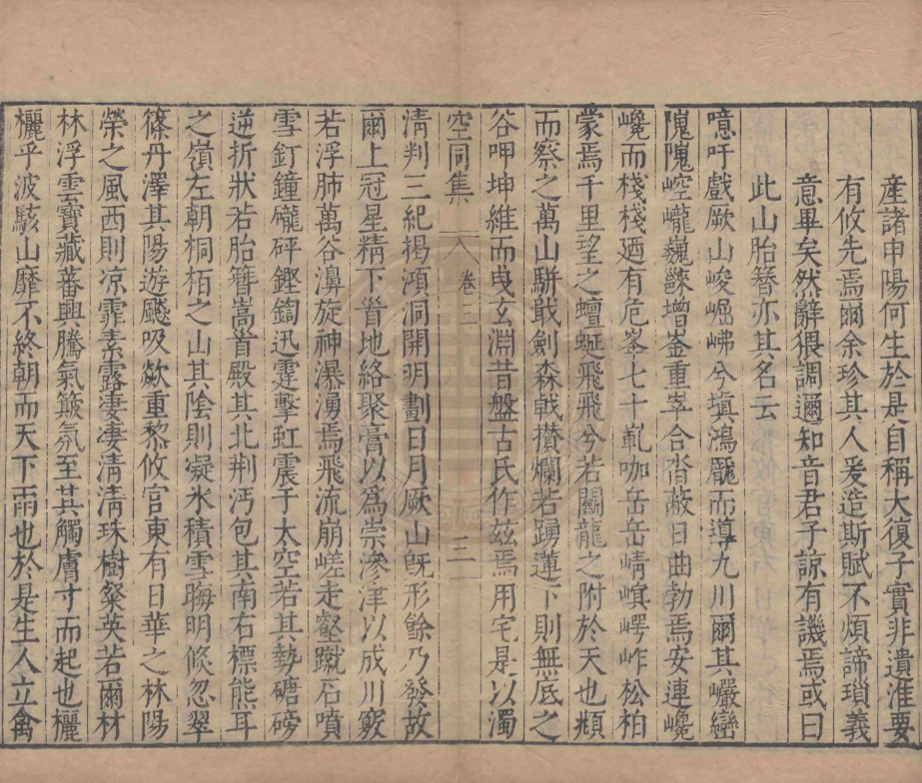 產諸申陽何生於是自稱大復子實非遺淮要
有攸先焉爾余珍其人爰造斯賦不煩諦瑣義
意畢矣然辭猥調邇知音君子諒有譏焉或曰
此山胎簪亦其名云
噫吁戲厥山峻崛岪兮塡鴻厖而導九川爾其巖巒
隗隗崆巄巍嶫增崟重崒合沓蔽日曲勃焉安連巉
巉而棧棧廼有危峯七十亂咖岳岳崝嵮崿岞松柏
蒙焉千里望之蟺蜒飛飛兮若闞龍之附於天也頫
而察之萬山駢戢劍森戟攅爛若踴蓮下則無底之
谷呷坤維而曳玄淵昔盤古氏作茲焉用宅是以濁
空同集
卷三
三
清判三紀楬澒洞開明劃日月厥山旣形餘乃發故
爾上冠星精下胷地絡聚膏以爲崇滲津以成川竅
若浮肺萬谷濞旋神瀑湧焉飛流崩嵯走壑蹴石噴
雪釘鐘礲砰鏗鍧迅霆擊虹震于太空若其勢磄磅
逆折狀若胎簪嵩首殿其北荆沔包其南右標熊耳
之嶺左朝桐栢之山其陰則凝氷積雪晦明倐忽翠
篠丹澤其陽遊飈吸歘重黎攸官東有日華之林陽
榮之風西則凉霏素露凄凄淸淸珠樹粲英若爾材
林浮雲寶藏蕃興騰氣簸氛至其觸膚寸而起也欐
欐乎波駭山靡不終朝而天下雨也於是生人立禽